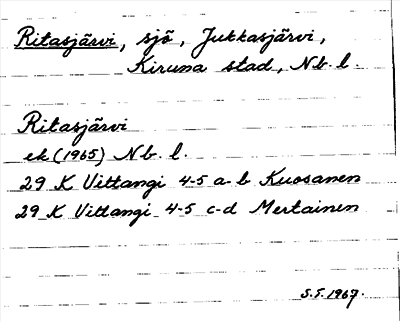 Ritasjärvi, sjö, Jukkasjärvi,
Kiruna stad, Nb. l.
Ritasjärvi
ek (1965) Nb. l.
29 K Vittangi 4-5 a-b Kuosanen
29 K Vittangi 4-5 c-d Mertainen
S.F. 1967.